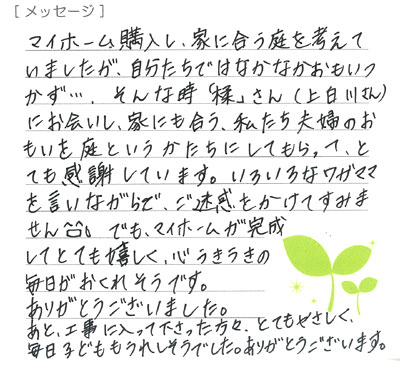 [ メッセージ ]
マイホーム購入し、家に合う庭を考えて
いましたが、自分たちではなかなかおもいつ
かず…。そんな時「楺」さん(上白川さん)
にお会いし、家にも合う、私たち夫婦のお
もいを庭というかたちにしてもらって、と
ても感謝しています。いろいろなワガママ
を言いながらで、ご迷惑をかけてすみま
せん。でも、マイホームが完成
してとても嬉しく、心うきうきの
毎日がおくれそうです。
ありがとうございました。
あと、工事に入って下さった方々、とてもやさしく、
毎日子どももうれしそうでした。ありがとうございます。